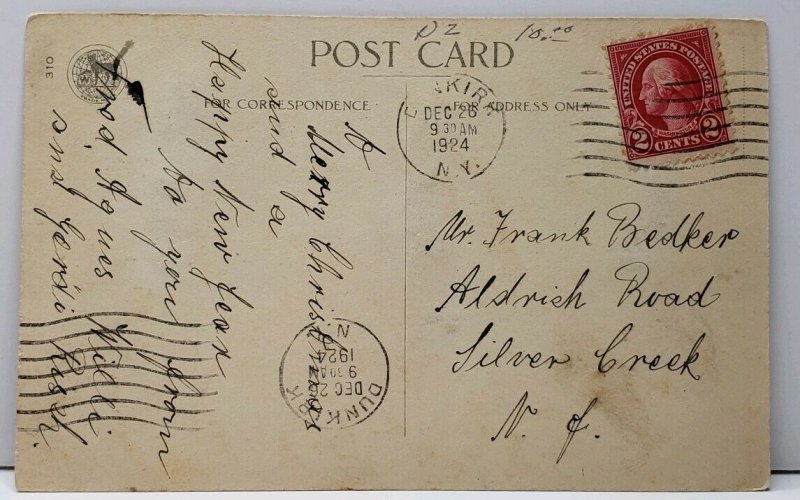 DZ 10.00
310
POST CARD
FOR CORRESPONDENCE
FOR ADDRESS ONLY
UNITED STATES POSTAGE
WASHINGTON
2 CENTS 2
DUNKIRK
DEC 26
9 30 AM
1924
N.Y.
A
Merry Christmas
and a
Happy New Year
to you from
and, Agnes Willi
and Gerdi Risch.
DUNKIRK
DEC 26
9 30 AM
1924
N.
Mr. Frank Bedker
Aldrich Road
Silver Creek
N. Y.